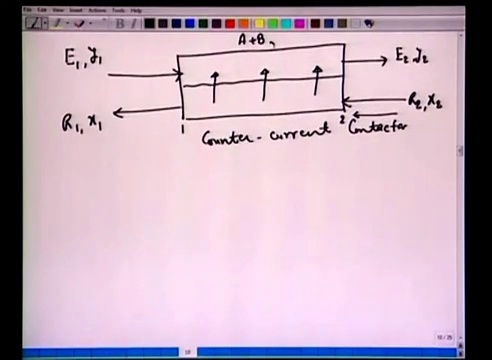 File Edit View Insert Actions Tools Help
A+B,
E1, y1
E2, y2
R1, x1
R2, x2
1
2
Counter-current Contactor
10
10/25